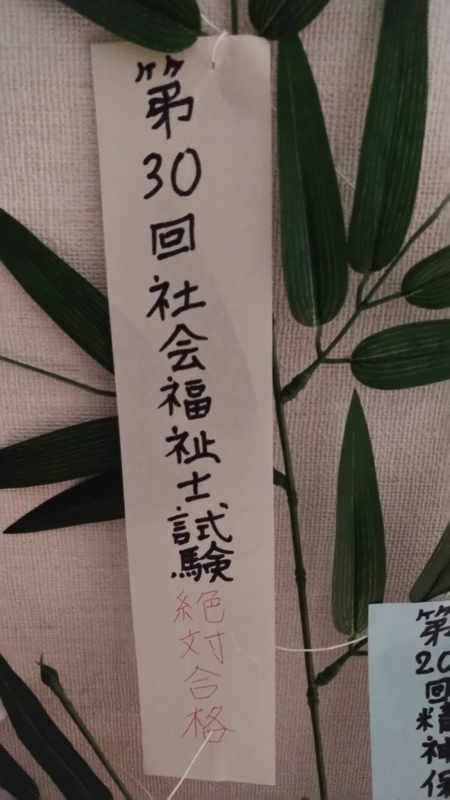 第30回社会福祉士試験絶対合格
第20回精神保